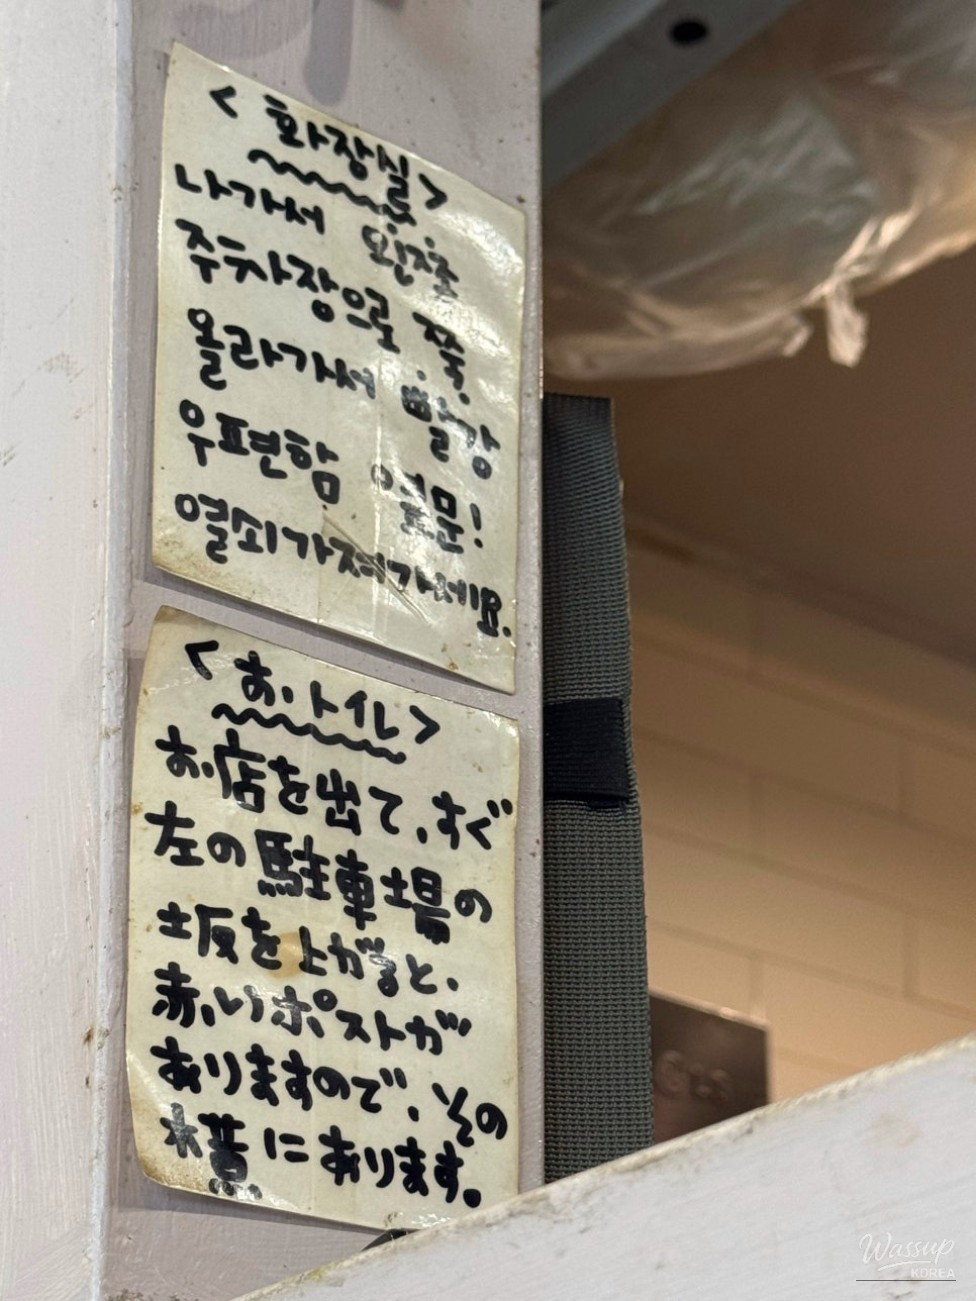 <화장실>
나가서 왼쪽
주차장으로 쭉
올라가서 빨강
우편함 옆문!
열쇠가져가세요.
<おトイレ>
お店を出て、すぐ
左の駐車場の
坂を上がると、
赤いポストが
ありますので、その
横にあります。
Wassup
KOREA